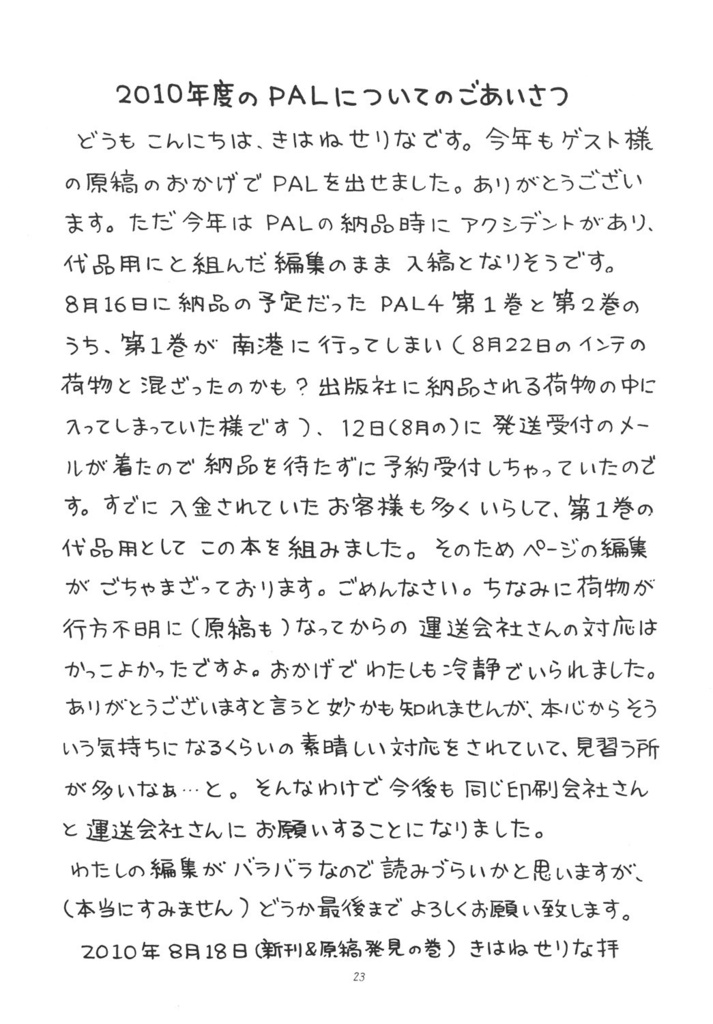 2010年度のPALについてのごあいさつ
どうも こんにちは、きはねせりなです。今年もゲスト様
の原稿のおかげで PALを出せました。ありがとうござい
ます。ただ今年は PALの納品時に アクシデントがあり、
代品用にと組んだ編集のまま 入稿となりそうです。
8月16日に納品の予定だった PAL4 第1巻と第2巻の
うち、第1巻が 南港に行ってしまい(8月22日のインテの
荷物と混ざったのかも?出版社に納品される荷物の中に
入ってしまっていた様です)、12日(8月の)に 発送受付のメー
ルが着たので納品を待たずに予約受付しちゃっていたので
す。すでに 入金されていた お客様も多くいらして、第1巻の
代品用として この本を組みました。そのため ページの編集
が ごちゃまざっております。ごめんなさい。ちなみに荷物が
行方不明に(原稿も)なってからの 運送会社さんの対応は
かっこよかったですよ。おかげで わたしも冷静でいられました。
ありがとうございますと言うと妙かも知れませんが、本心からそう
いう気持ちになるくらいの素晴しい対応をされていて、見習う所
が多いなぁ…と。そんなわけで今後も 同じ印刷会社さん
と運送会社さんに お願いすることになりました。
わたしの編集が バラバラなので読みづらいかと思いますが、
(本当にすみません)どうか最後まで よろしくお願い致します。
2010年8月18日(新刊&原稿発見の巻) きはねせりな拝
23